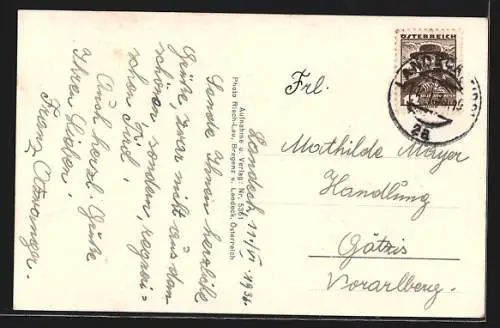 Landeck 11/VI. 1936
Sende Ihnen herzliche
Grüße, zwar nicht aus dem
schönen sondern, regneri=
schen Tirol.
Auch herzl. Grüße
Ihren Lieben!
Franz
Aufnahme u. Verlag: Nr. 5361
Photo Risch-Lau, Bregenz u. Landeck, Österreich
ÖSTERREICH
LANDECK
Frl.
Mathilde Mayer
Handlung
Götzis
Vorarlberg.